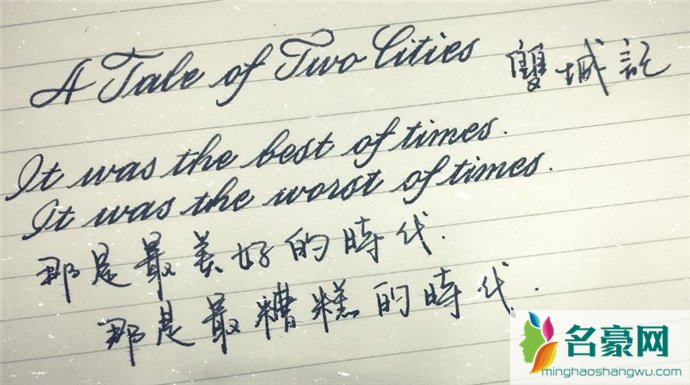 A Tale of Two Cities 雙城記
It was the best of times.
It was the worst of times.
那是最美好的時代.
那是最糟糕的時代.
名豪网
minghaoshangwu.com